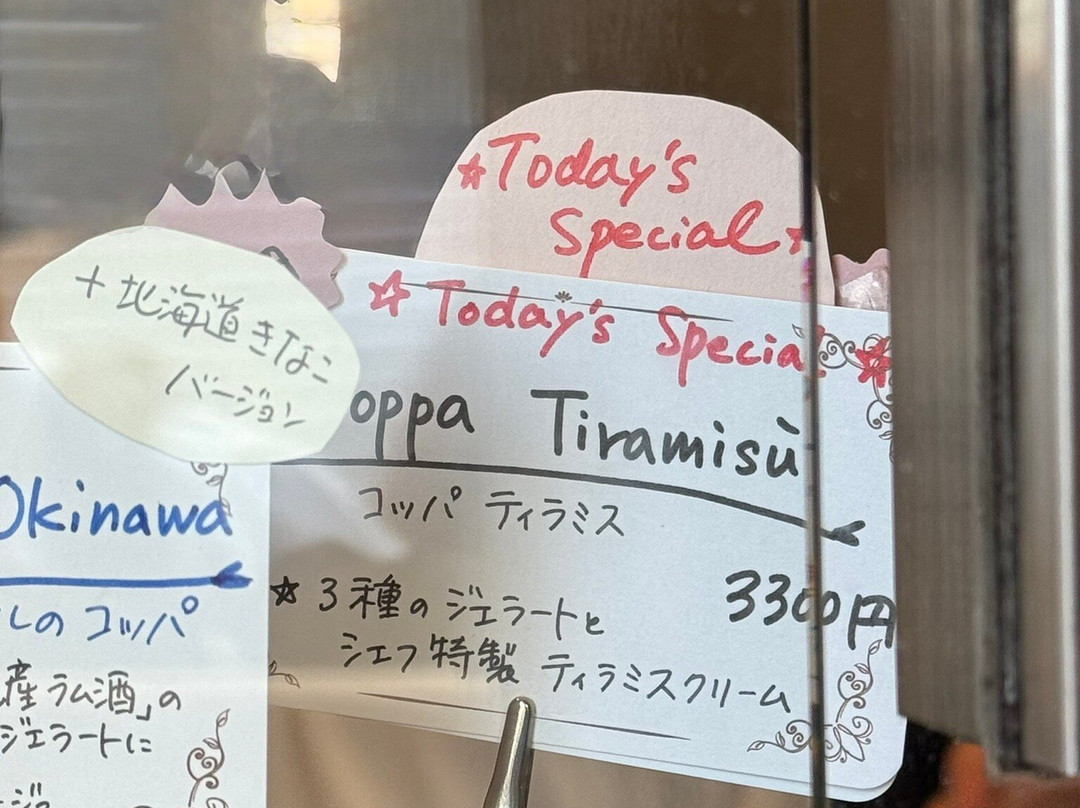 ☆Today's
Special☆
☆Today's Special☆
oppa Tiramisù
コッパ ティラミス
☆3種のジェラートと
シェフ特製 ティラミスクリーム
3300円
+北海道きなこ
バージョン
Okinawa
しのコッパ
産ラム酒」の
ジェラートに